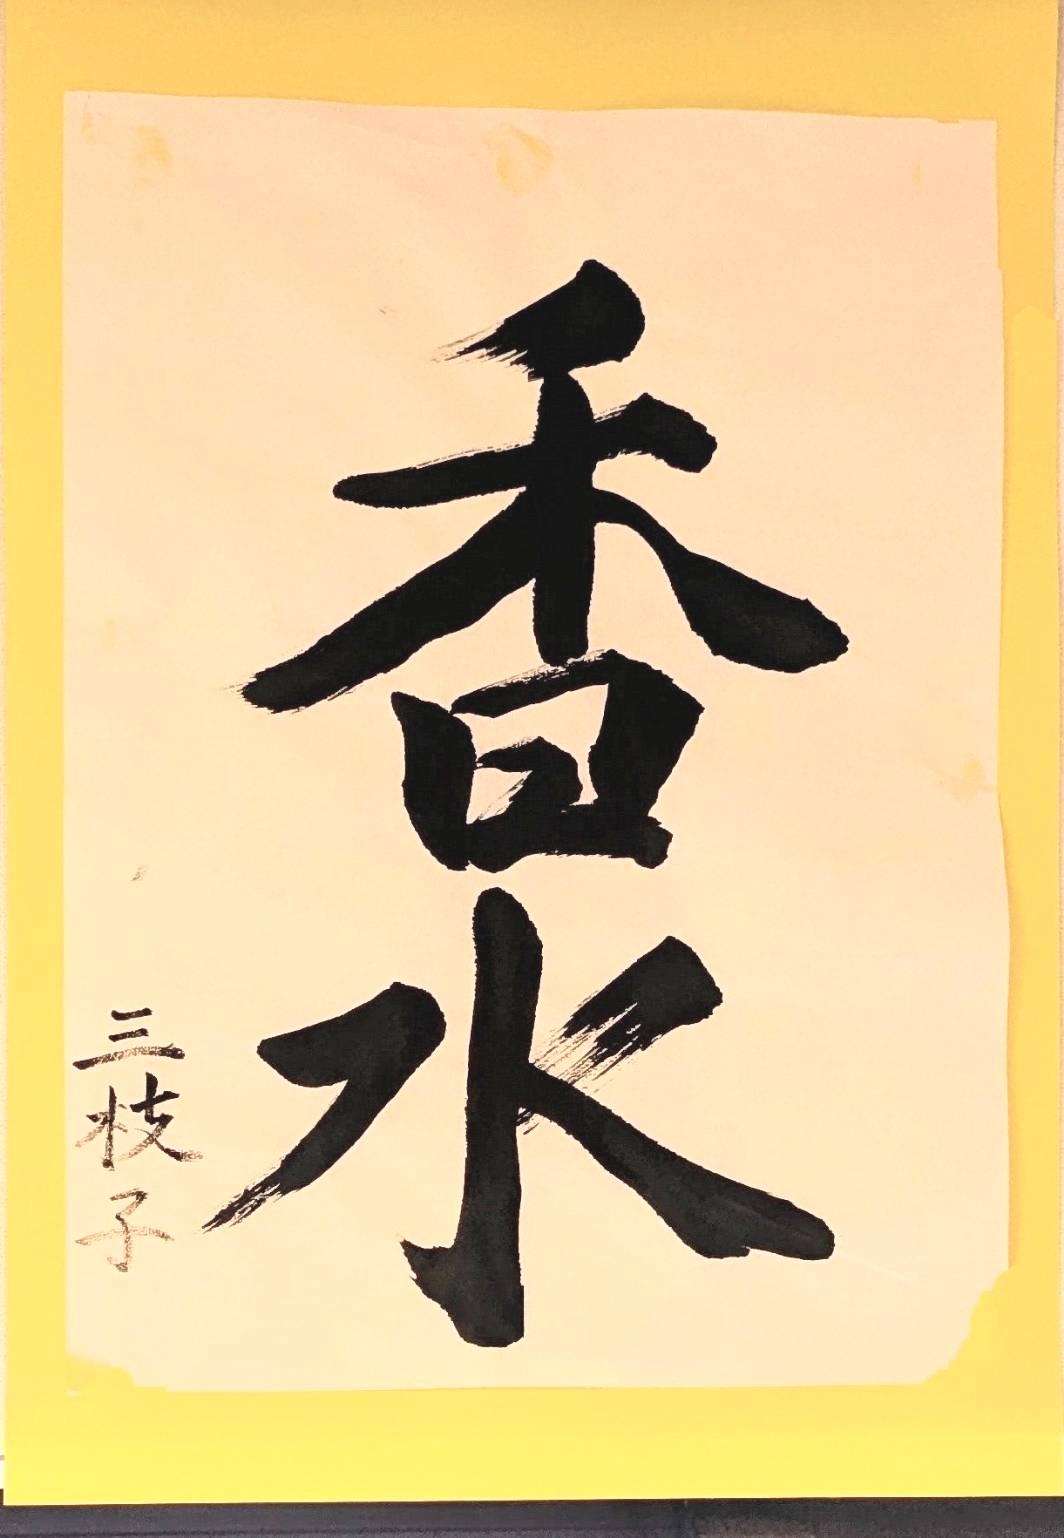 香水
三枝子